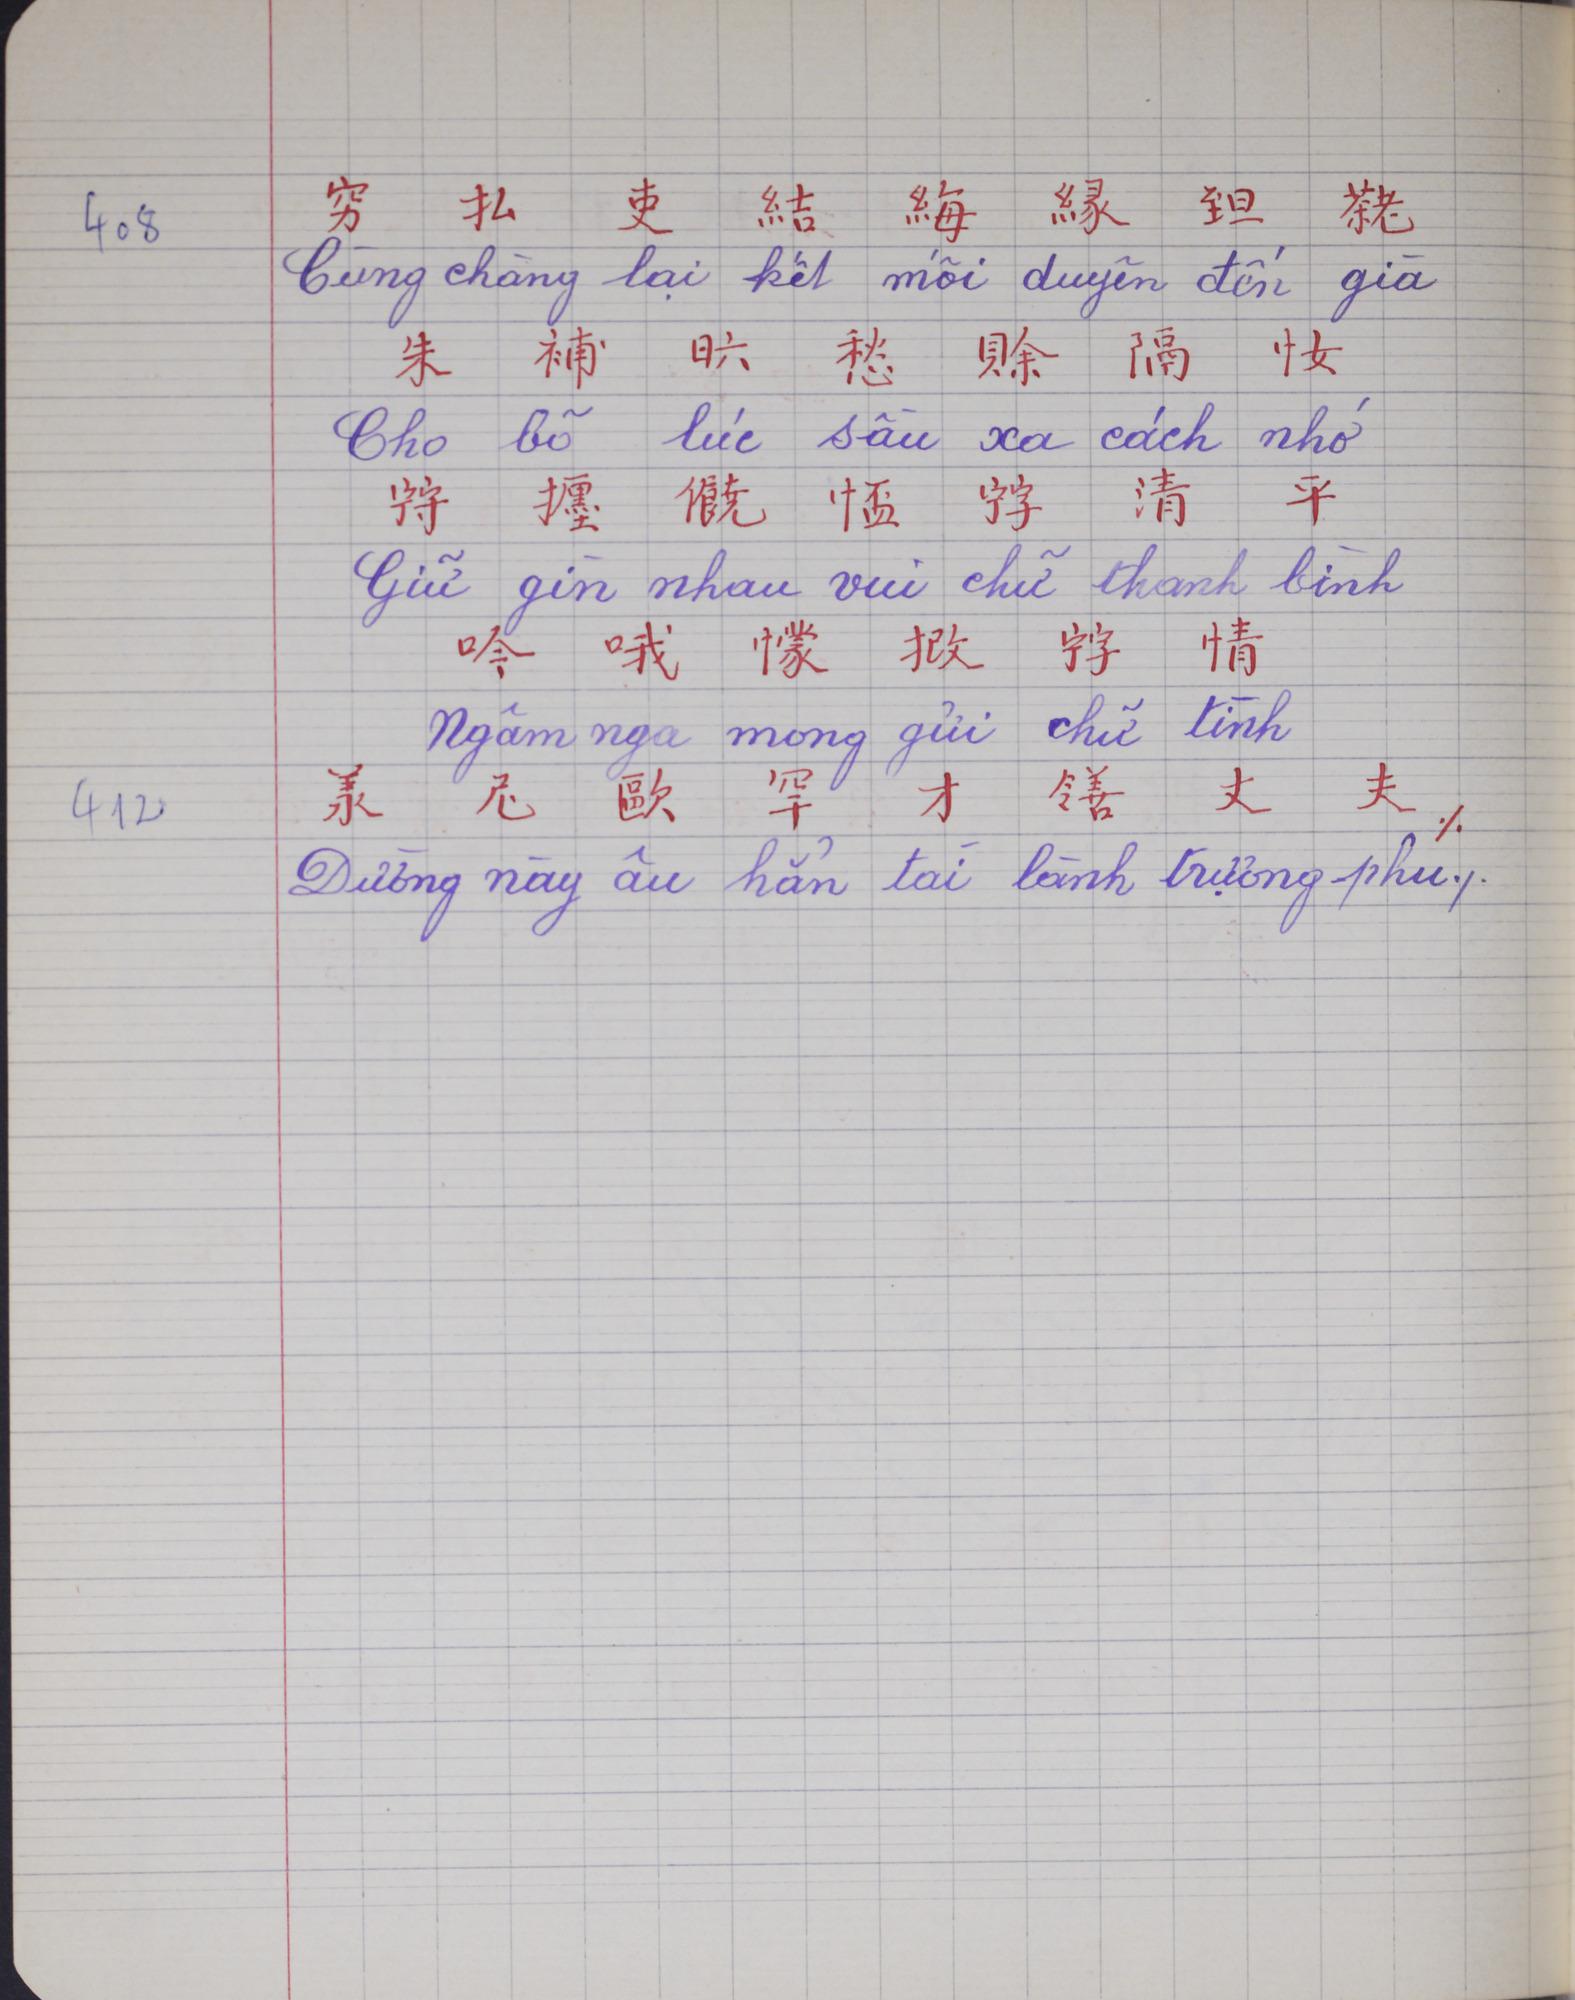 408 穷 払 吏 結 䋦 縁 𦤾 𦓅
Cùng chàng lại kết mối duyên đến già
朱 補 𣅶 愁 賒 隔 𢖵
Cho bõ lúc sầu xa cách nhớ
𡨹 㨙 饒 𢝙 𡨸 清 平
Giữ gìn nhau vui chữ thanh bình
吟 哦 懞 𢭮 𡨸 情
Ngâm nga mong gửi chữ tình
412 羕 尼 歐 罕 才 𫅜 丈 夫 ٪
Dường này âu hẳn tài lành trượng phu ./.